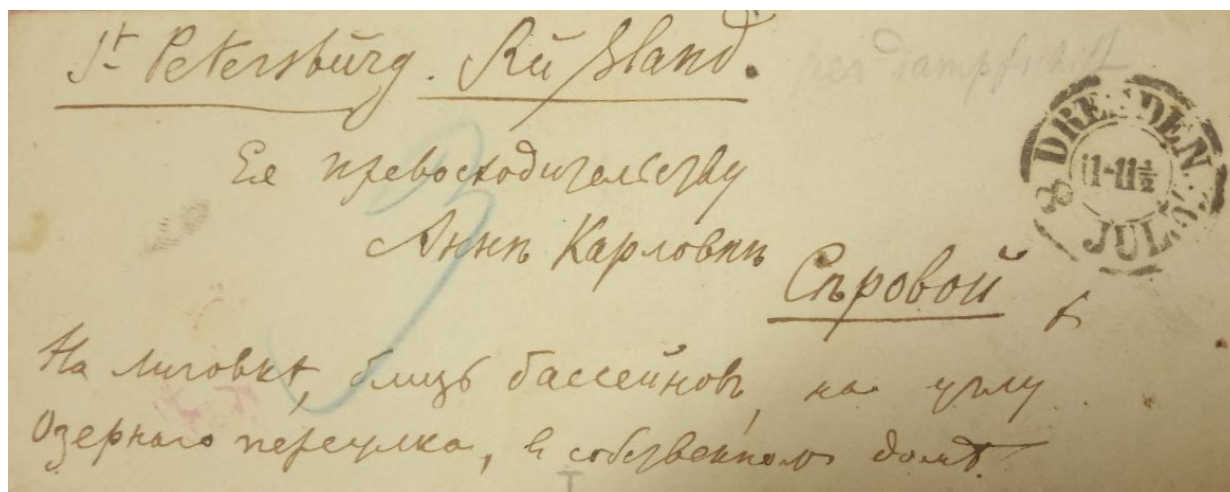 St Petersburg. Rußland.
per Dampfschiff
DRESDEN
11-11½
JUL.
3
Ее превосходительству
Аннѣ Карловнѣ
Сѣровой
На Лиговкѣ, близъ бассейновъ, на углу
Озернаго переулка, в собственномъ домѣ.